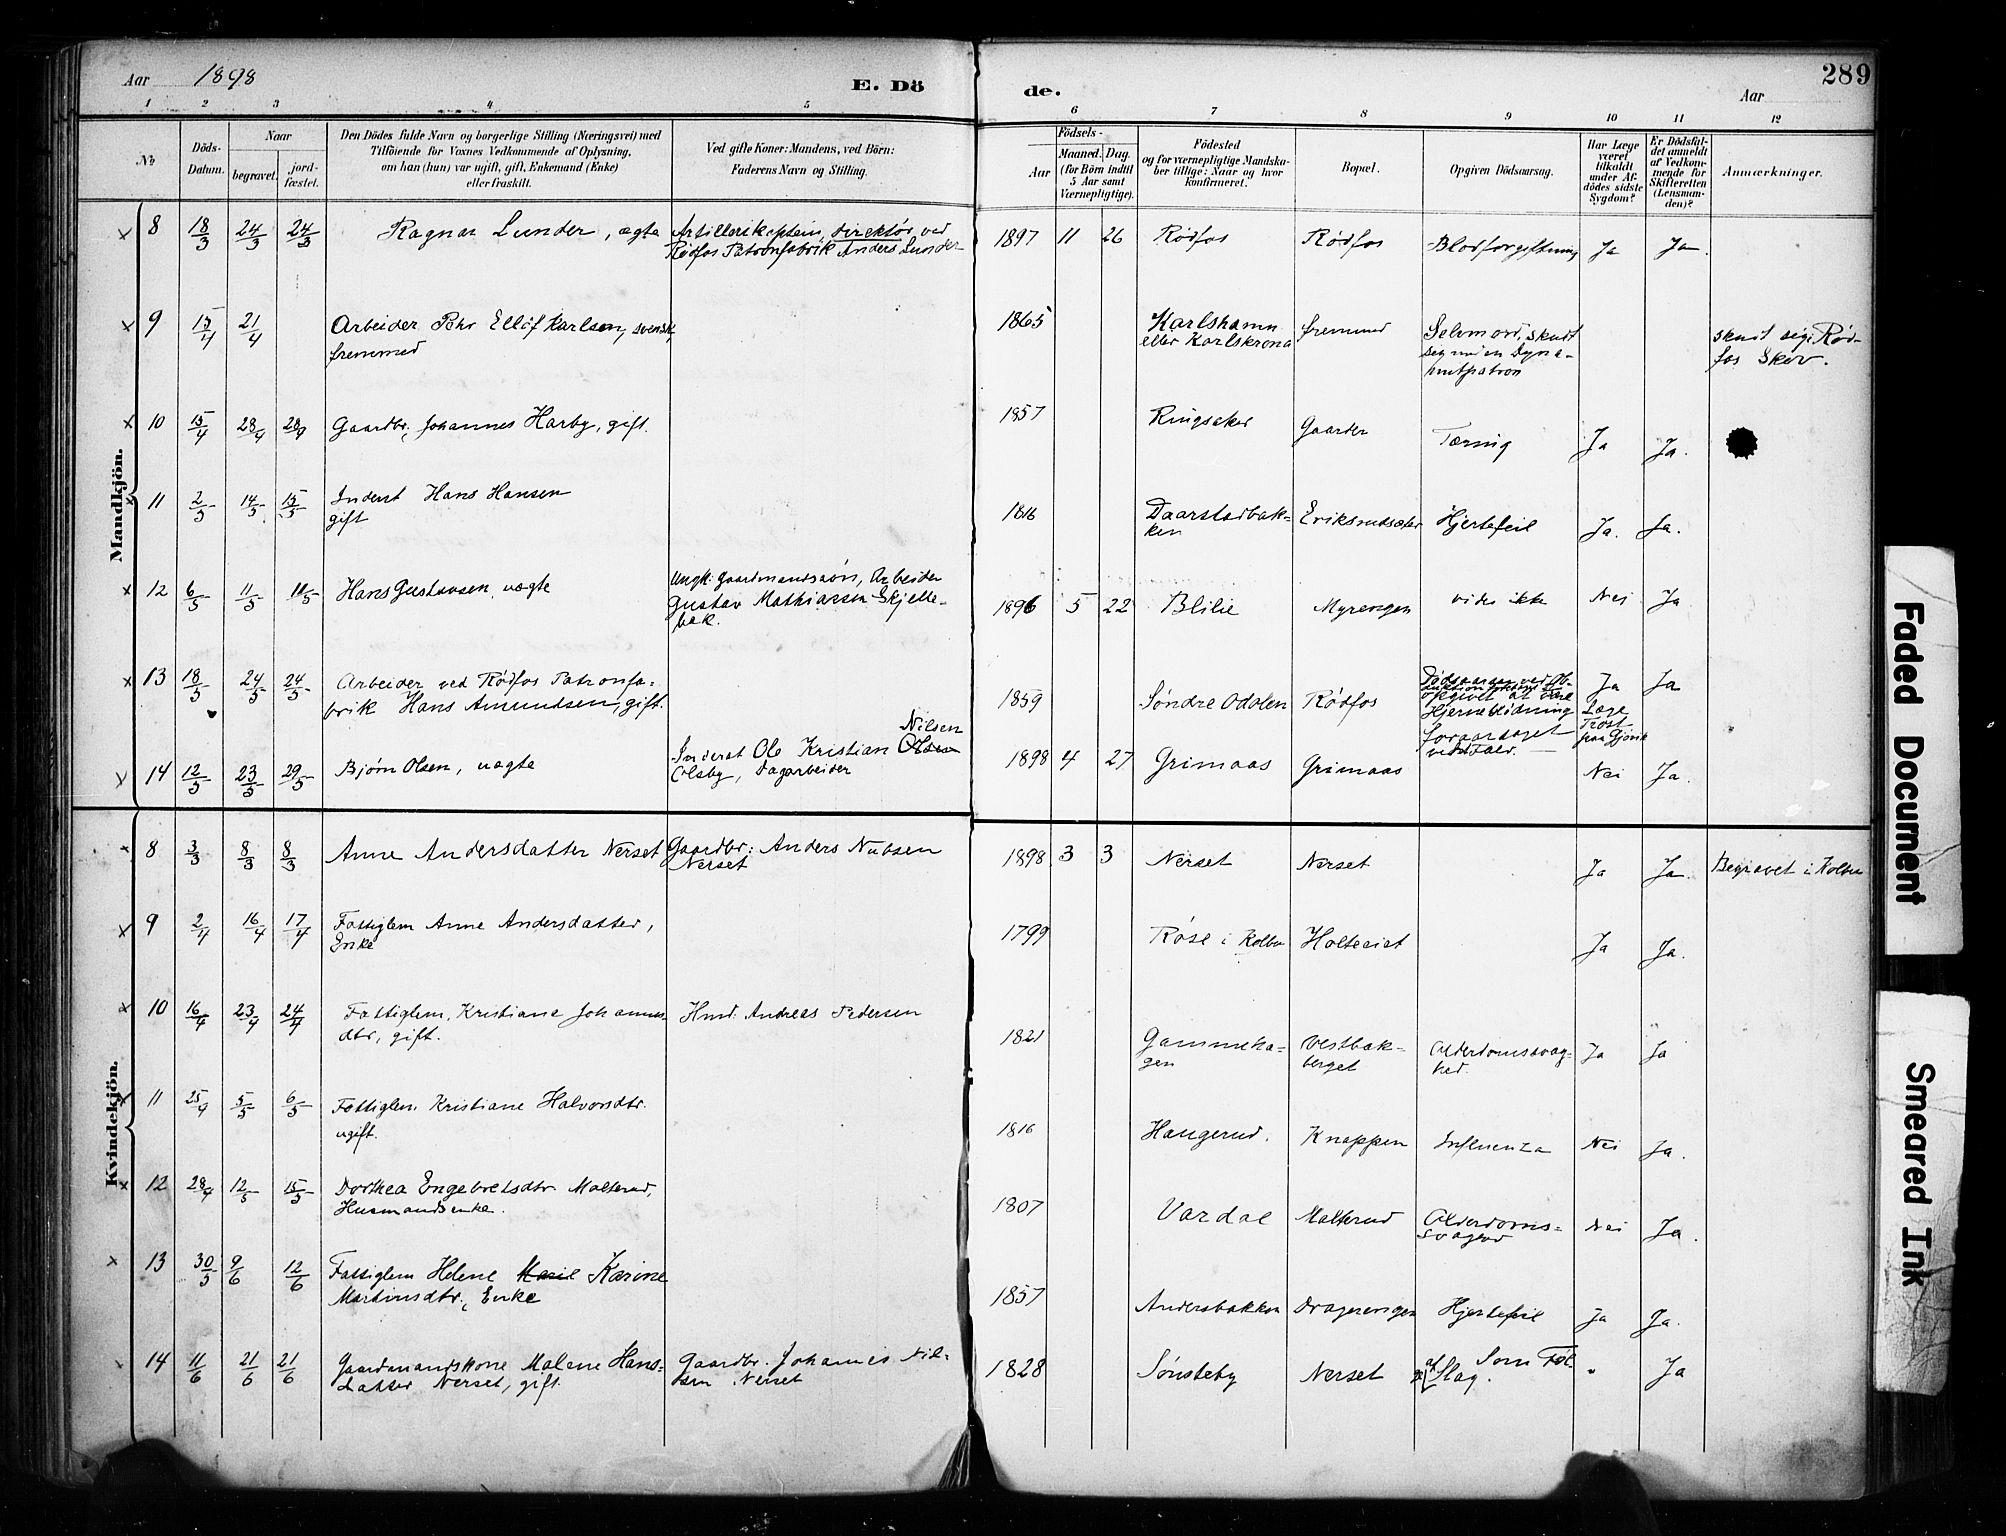 Aar 1898
E. Dö
de.
Aar
289
1 2 3 4 5 6 7 8 9 10 11 12
No
Döds-Datum.
Naar
begravet.
jord-fæstet.
Den Dödes fulde Navn og borgerlige Stilling (Næringsvei) med
Tilföiende for Voxnes Vedkommende af Oplysning,
om han (hun) var ugift, gift, Enkemand (Enke)
eller fraskilt.
Ved gifte Koner: Mandens, ved Börn:
Faderens Navn og Stilling.
Födsels-
Aar
Maaned. Dag.
(for Börn indtil
5 Aar samt
Værnepligtige).
Födested
og for værnepligtige Mandska-
ber tillige: Naar og hvor
konfirmeret.
Bopæl.
Opgiven Dödsaarsag.
Har Læge
været
tilkaldt
under Af-
dödes sidste
Sygdom?
Er Dödsfal-
det anmeldt
af Vedkom-
mende for
Skifteretten
(Lensman-
den)?
Anmærkninger.
Mandkjön.
8 18/3 24/3 24/3 Ragnar Lunder, ægte Artillerikaptein, direktør ved
Rødfos Patronfabrik Anders Lunder
1897 11 26 Rødfos Rødfos Blodforgiftning Ja Ja
9 15/4 21/4 Arbeider Pehr Ellof Karlsen, svensk,
fremmed
1865 Karlshamn
eller Karlskrona fremmed Selvmord, skudt
seg med en Dyna-
mitpatron
skudt sig i Rød-
fos Skov.
10 15/4 28/4 28/4 Gaardbr. Johannes Harby, gift.
1857 Ringsaker Gaarder Tæring Ja Ja.
11 2/5 14/5 15/5 Inderst Hans Hansen
gift
1816 Daarstadbak-
ken Eriksrudsæter Hjertefeil Ja. Ja.
12 6/5 11/5 11/5 Hans Gustavsen, uægte Ungk. Gaardmandssøn, Arbeider
Gustav Mathiassen Skjelle-
bæk.
1896 5 22 Blilie Myrengen vides ikke Nei Ja
13 18/5 24/5 24/5 Arbeider ved Rødfos Patronfa-
brik Hans Amundsen, gift.
1859 Søndre Odalen Rødfos Dødsaarsag ved Ob-
opgivet at være
Hjerneblødning
foraarsaget
ved Fald. Ja Læge
Trost
paa Gjøvik Ja
14 12/5 23/5 29/5 Bjørn Olsen, uægte Inderst Ole Kristian Nilsen
Olsby, Dagarbeider
1898 4 27 Grimaas Grimaas Nei Ja.
Kvindekjön.
8 3/3 8/3 8/3 Anne Andersdatter Nerset Gaardbr: Anders Nubsen
Nerset
1898 3 3 Nerset Nerset Ja Ja. Begravet i Kolbu
9 2/4 16/4 17/4 Fattiglem Anne Andersdatter,
Enke
1799 Røse i Kolbu Holteeiet Ja Ja.
10 16/4 23/4 24/4 Fattiglem, Kristiane Johannes-
dtr, gift. Hmd. Andreas Pedersen
1821 Gammeha-
gen Vestbak-
berget Alderdomssvag-
hed. Ja Ja
11 25/4 5/5 6/5 Fattiglem. Kristiane Halvorsdtr.
ugift.
1816 Haugerud. Knappen Influenza Nei Ja.
12 28/4 12/5 15/5 Dorthea Engebretsdtr. Malterud,
Husmandsenke.
1807 Vardal Malterud Alderdoms-
svaghed Nei Ja.
13 30/5 9/6 12/6 Fattiglem Helene Marie Karine
Martinsdtr., Enke
1857 Andersbakken Dragerengen Hjertefeil Ja Ja.
14 11/6 21/6 21/6 Gaardmandskone Malene Hans-
datter Nerset, gift. Gaardbr. Johannes Nil-
sen Nerset
1828 Sønsteby Nerset Som Føl-
ge af Slag. " Ja
Faded Document
Smeared Ink